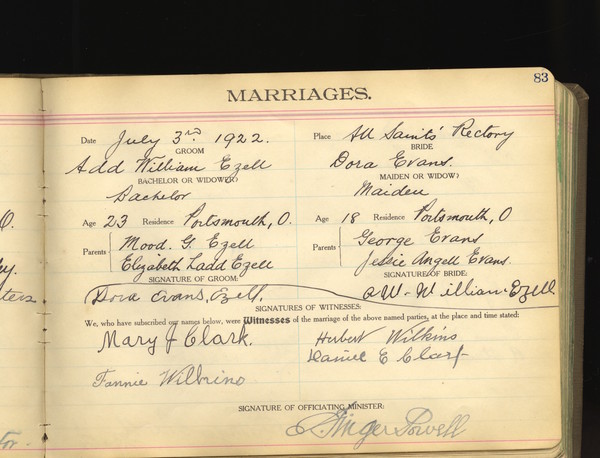 83
MARRIAGES.
Date July 3rd 1922. Place All Saints' Rectory
GROOM BRIDE
Add William Ezell Dora Evans.
BACHELOR OR WIDOWER? MAIDEN OR WIDOW?
Bachelor Maiden
Age 23 Residence Portsmouth, O. Age 18 Residence Portsmouth, O
Parents Mood. G. Ezell Parents George Evans
Elizabeth Ladd Ezell Jessie Angell Evans.
SIGNATURE OF GROOM: SIGNATURE OF BRIDE:
Dora Evans, Ezell. William Ezell
SIGNATURES OF WITNESSES:
We, who have subscribed our names below, were Witnesses of the marriage of the above named parties, at the place and time stated:
Mary J Clark. Herbert Wilkins
Daniel E Clark
Fannie
SIGNATURE OF OFFICIATING MINISTER:
Powell